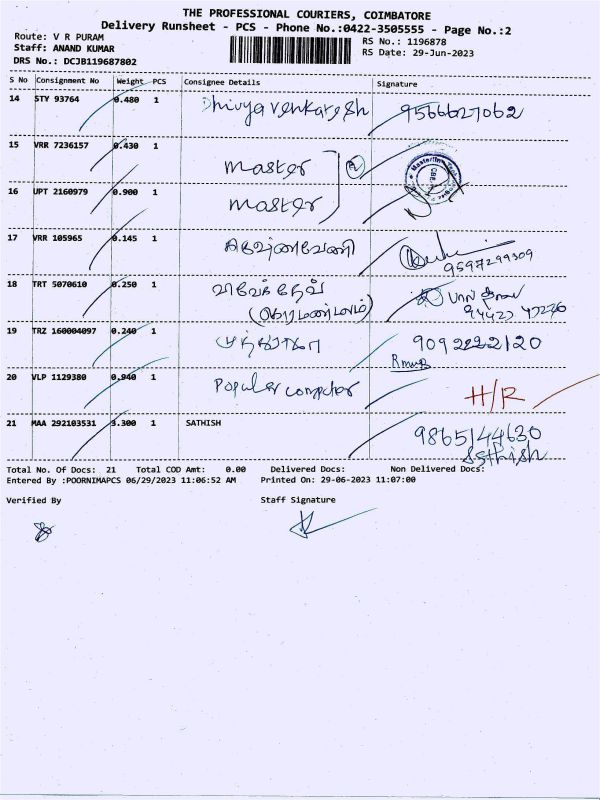 THE PROFESSIONAL COURIERS, COIMBATORE
Delivery Runsheet - PCS - Phone No.:0422-3505555 - Page No.:2
Route: V R PURAM
Staff: ANAND KUMAR
DRS No.: DCJB119687802
RS No.: 1196878
RS Date: 29-Jun-2023
S No Consignment No Weight PCS Consignee Details Signature
14 STY 93764 0.480 1 Dhivya venkatesh 9566627062
15 VRR 7236157 0.430 1 master
16 UPT 2160979 0.900 1 master
17 VRR 105965 0.145 1
9597299309
18 TRT 5070610 0.250 1
19 TRZ 160004097 0.240 1
20 VLP 1129380 0.940 1 Popular computer H/R
21 MAA 292103531 3.300 1 SATHISH 9865144630
Sathish
Total No. Of Docs: 21 Total COD Amt: 0.00 Delivered Docs: Non Delivered Docs:
Entered By :POORNIMAPCS 06/29/2023 11:06:52 AM Printed On: 29-06-2023 11:07:00
Verified By Staff Signature